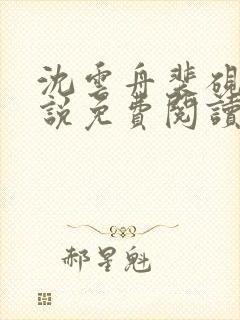 沈雲舟裴硯
説免費閱讀
郝星魁